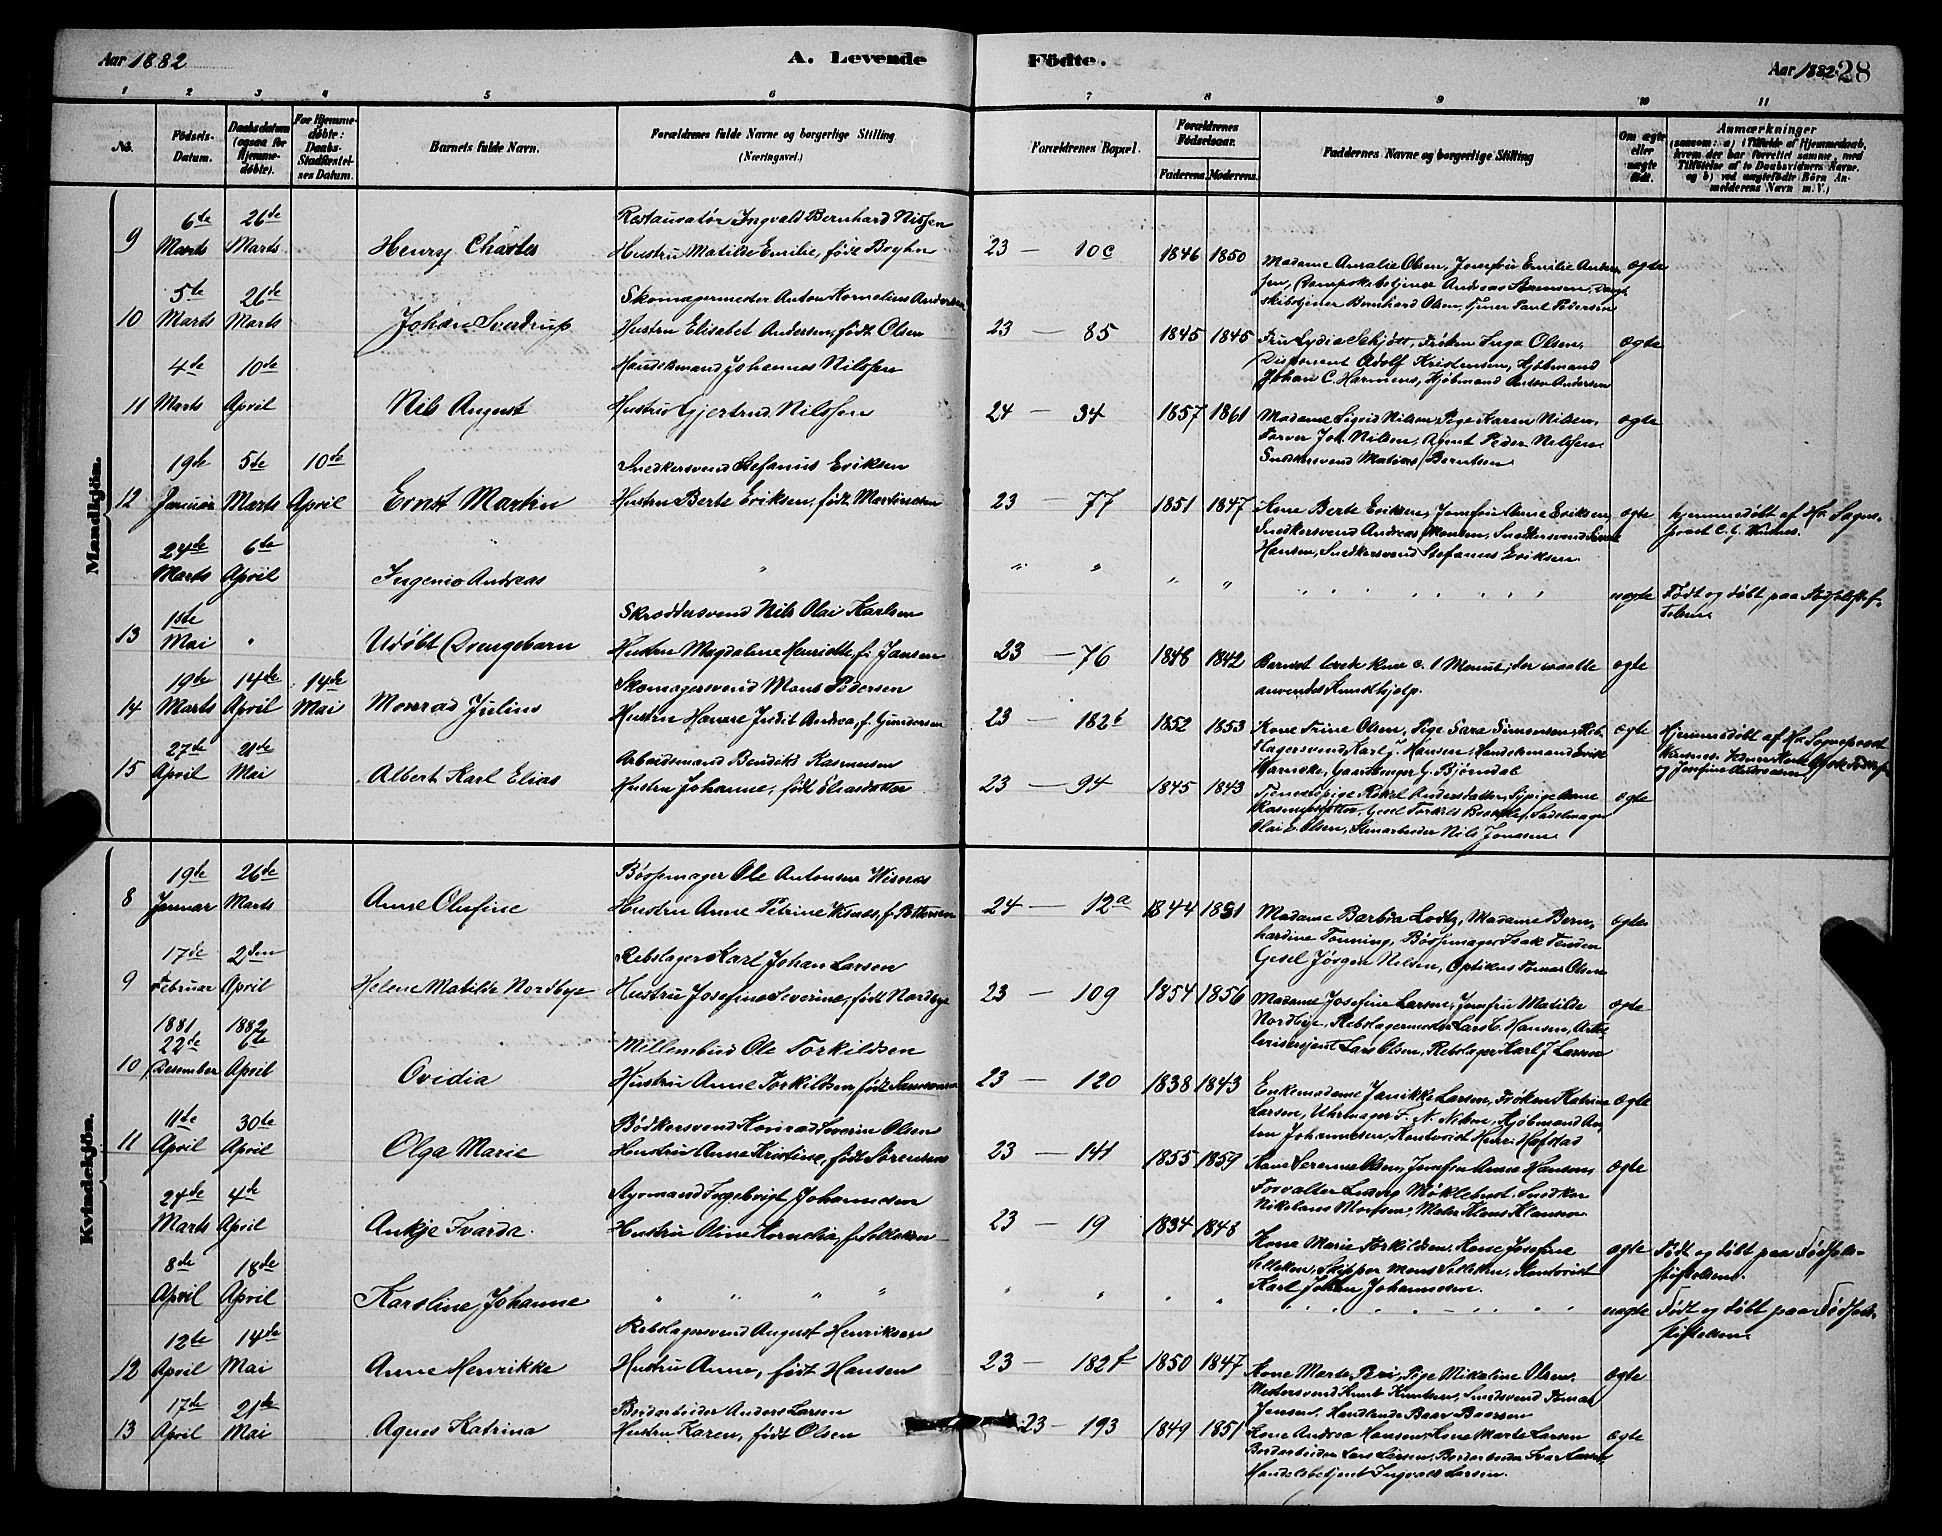 Aar 1882
A. Levende
Födte.
Aar 1882. 28
1 2 3 4 5 6 7 8 9 10 11
No.
Födsels-Datum.
Daabsdatum (ogsaa for Hjemmedøbte).
For Hjemmedøbte: Daabs-Stadfæstelses Datum.
Barnets fulde Navn.
Forældrenes fulde Navne og borgerlige Stilling (Næringsvei.)
Forældrenes Bopæl.
Forældrenes Fødselsaar.
Faderens. Moderens.
Faddernes Navne og borgerlige Stilling
Om ægte eller uægte født.
Anmærkninger
(saasom: a) i Tilfælde af Hjemmedaab, hvem der har forrettet samme, med Tilføielse af to Daabsvidners Navne, og b) ved uægtefødte Börn Anmelderens Navn m. V.)
Mandkjön.
6te 26de Restauratør Ingvald Bernhard Nissen
9 Marts Marts Henry Charles Hustru Matilde Emilie, født Boyhn 23 — 10c 1846 1850
Madame Amalie Olsen, Jomfru Emilie Ander- ægte
sen, Dampskibstjener Andreas Sørensen, Damp-
skibstjener Bernhard Olsen, Tjener Paul Pedersen
5te 26de Skomagermester Anton Kornelius Andersen
10 Marts Marts Johan Sverdrup Hustru Elisabet Andersen, født Olsen 23 — 85 1845 1845
Fru Lydia Schjött, Frøken Inga Olsen, ægte
Disponent Adolf Kristensen, Kjøbmand
Johan C. Harmens, Kjøbmand Anton Andersen
4de 10de Handelsmand Johannes Nilssen
11 Marts April Nils August Hustru Gjertrud Nilssen 24 — 34 1857 1861
Madame Sigrid Nilsen, Pige Karen Nilsen, ægte
Farver Joh. Nilsen, Agent Peder Nilssen
Snedkersvend Matias Berntsen
19de 5te 10de Snedkersvend Stefanus Eriksen
12 Januar Marts April Ernst Martin Hustru Berte Eriksen, født Martinsen 23 — 77 1851 1847
Kone Berte Eriksen, Jomfru Anne Eriksen, ægte hjemmedøbt af Hr. Sogne-
Snedkersvend Andreas Monsen, Snedkersvend provst C. G.
Hansen, Snedkersvend Stefanus Eriksen.
24de 6te
Marts April Ingenio Andreas " " " " "
uægte Født og døbt paa Fødselsstif-
telsen.
1ste Skræddersvend Nils Olai Karlsen
13 Mai " Udøbt Drengebarn Hustru Magdalene Henriette, f. Jansen 23 — 76 1848 1842
Barnet levede kun c. 1 Minut; der maatte ægte
anvendes Kunsthjelp.
19de 14de 14de Skomagersvend Mons Pedersen
14 Marts April Mai Monrad Julius Hustru Hanne Judit Andrea, f. Gundersen 23 — 182b 1852 1853
Kone Trine Olsen, Pige Sara Simonsen, Reb- ægte Hjemmedøbt af Hr. Sogneprovst
slagersvend Karl J. Hansen, Handelsmand Erik
Warncke, Gaardbruger G. Bjørndal og Josefine Andersen
27de 21de Arbeidsmand Bendiks Rasmussen
15 April Mai Albert Karl Elias Hustru Johanne, født Eliasdatter 23 — 94 1845 1843
Tjenestepige Rakel Andersdatter, Sypige Anne ægte
Rasmusdatter, Gesel Torkild, Sadelmager
Olai E. Olsen, Stenarbeider Nils Jonasen
Kvindekjön.
19de 26de Børsemager Ole Antonsen Wisnes
8 Januar Marts Anne Olufine Hustru Anne Petrine Wisnes, f. Pettersen 24 — 12a 1844 1851
Madame Barbra Lodtz, Madame Bern- ægte
hardine Tonning, Børsemager Isak Tenden
Gesel Jørgen Nilsen, Optikus Tomas Olsen
17de 2den Rebslager Karl Johan Larsen
9 Februar April Helene Matilde Nordbye Hustru Josefine Severine, født Nordbye 23 — 109 1854 1856
Madame Josefine Larsen, Jomfru Matilde ægte
Nordbye, Rebslagermester Lars C. Hansen, Artil-
lerisersjent Lars Olsen, Rebslager Karl J. Larsen
1881 1882
22de 6te Møllembud Ole Torkildsen
10 December April Ovidia Hustru Anne Torkildsen, født Samsonsen 23 — 120 1838 1843
Enkemadame Jannikke Larsen, Frøken Katrine ægte
Larsen, Uhrmager F. N. Nilsen, Kjøbmand An-
ton Johannesen, Kontorist Henr. Hafstad
11te 30te Bødkersvend Konrad Severin Olsen
11 April April Olga Marie Hustru Anne Kristine, født Sørensen 23 — 141 1855 1859
Kone Serenne Olsen, Jomfru Anne Hansen, ægte
Forvalter Ludvig Møklebust, Snedker
Nikolaus Monsen, Maler Klaus Klausen
24de 4de Styrmand Ingebrigt Johannesen
Marts April Ankje Ivarda Hustru Oline Kornelia, f. Solleken 23 — 19 1834 1848
Kone Marie Torkildsen, Kone Josefine ægte Født og døbt paa Fødsels-
Solleken, Skipper Mons Solleken, Kontorist stiftelsen.
Karl Johan Johannesen.
8de 18de
April April Karoline Johanne " " " " " " " "
uægte Født og døbt paa Fødsels-
stiftelsen.
12te 14de Rebslagersvend August Henriksen
12 April Mai Anne Henrikke Hustru Anne, født Hansen 23 — 182f 1850 1847
Kone Marte, Pige Mikaline Olsen, ægte
Knut Knutsen, Tomas
Jensen, Handlende Baar Baarsen
17de 21de Bordarbeider Anders Larsen
13 April Mai Agnes Katrina Hustru Karen, født Olsen 23 — 193 1849 1851
Kone Andrea Hansen, Kone Marte Larsen ægte
Bordarbeider Lars Larsen, Bordarbeider Ivar Larsen,
Handelsbetjent Ingvald Larsen.